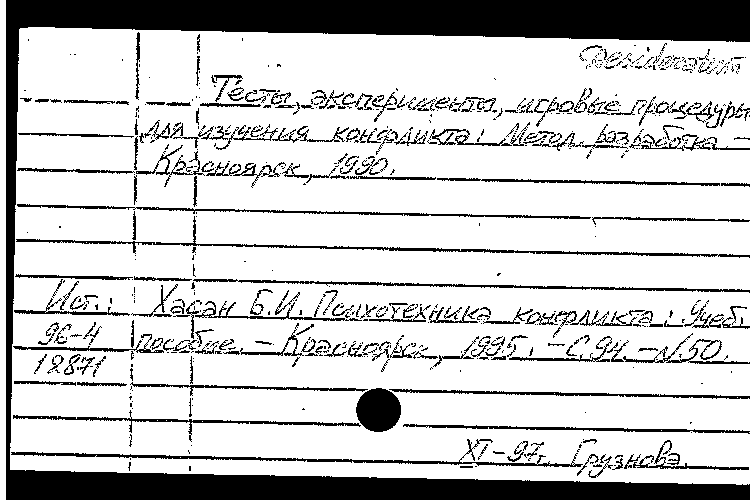 Desideratum
Тесты, эксперименты, игровые процедуры
для изучения конфликта: Метод. разработка –
Красноярск, 1990.
Ист.: Хасан Б.И. Психотехника конфликта: Учеб.
96-4 пособие. – Красноярск, 1995. – С.94. – N50.
12871
XI-97г. Грузнова.